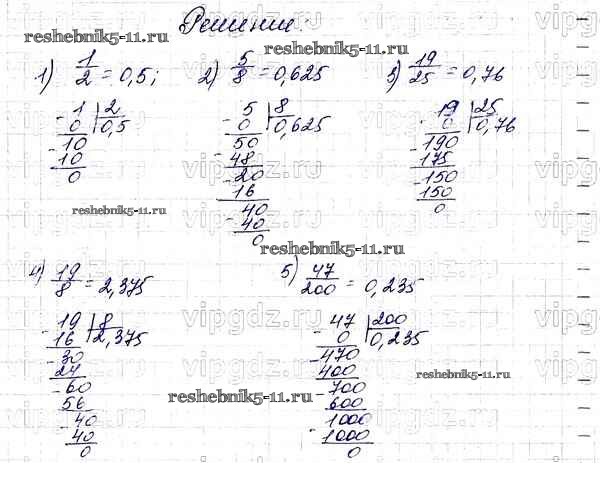 Решение:
1) 1/2 = 0,5;
2) 5/8 = 0,625
3) 19/25 = 0,76
1 | 2
- 0 | 0,5
10
- 10
0
5 | 8
- 0 | 0,625
50
- 48
20
- 16
40
- 40
0
19 | 25
- 0 | 0,76
190
- 175
150
- 150
0
4) 19/8 = 2,375
5) 47/200 = 0,235
19 | 8
- 16 | 2,375
30
- 24
60
- 56
40
- 40
0
47 | 200
- 0 | 0,235
470
- 400
700
- 600
1000
- 1000
0
reshebnik5-11.ru
reshebnik5-11.ru
reshebnik5-11.ru
reshebnik5-11.ru
reshebnik5-11.ru
reshebnik5-11.ru
vipgdz.ru